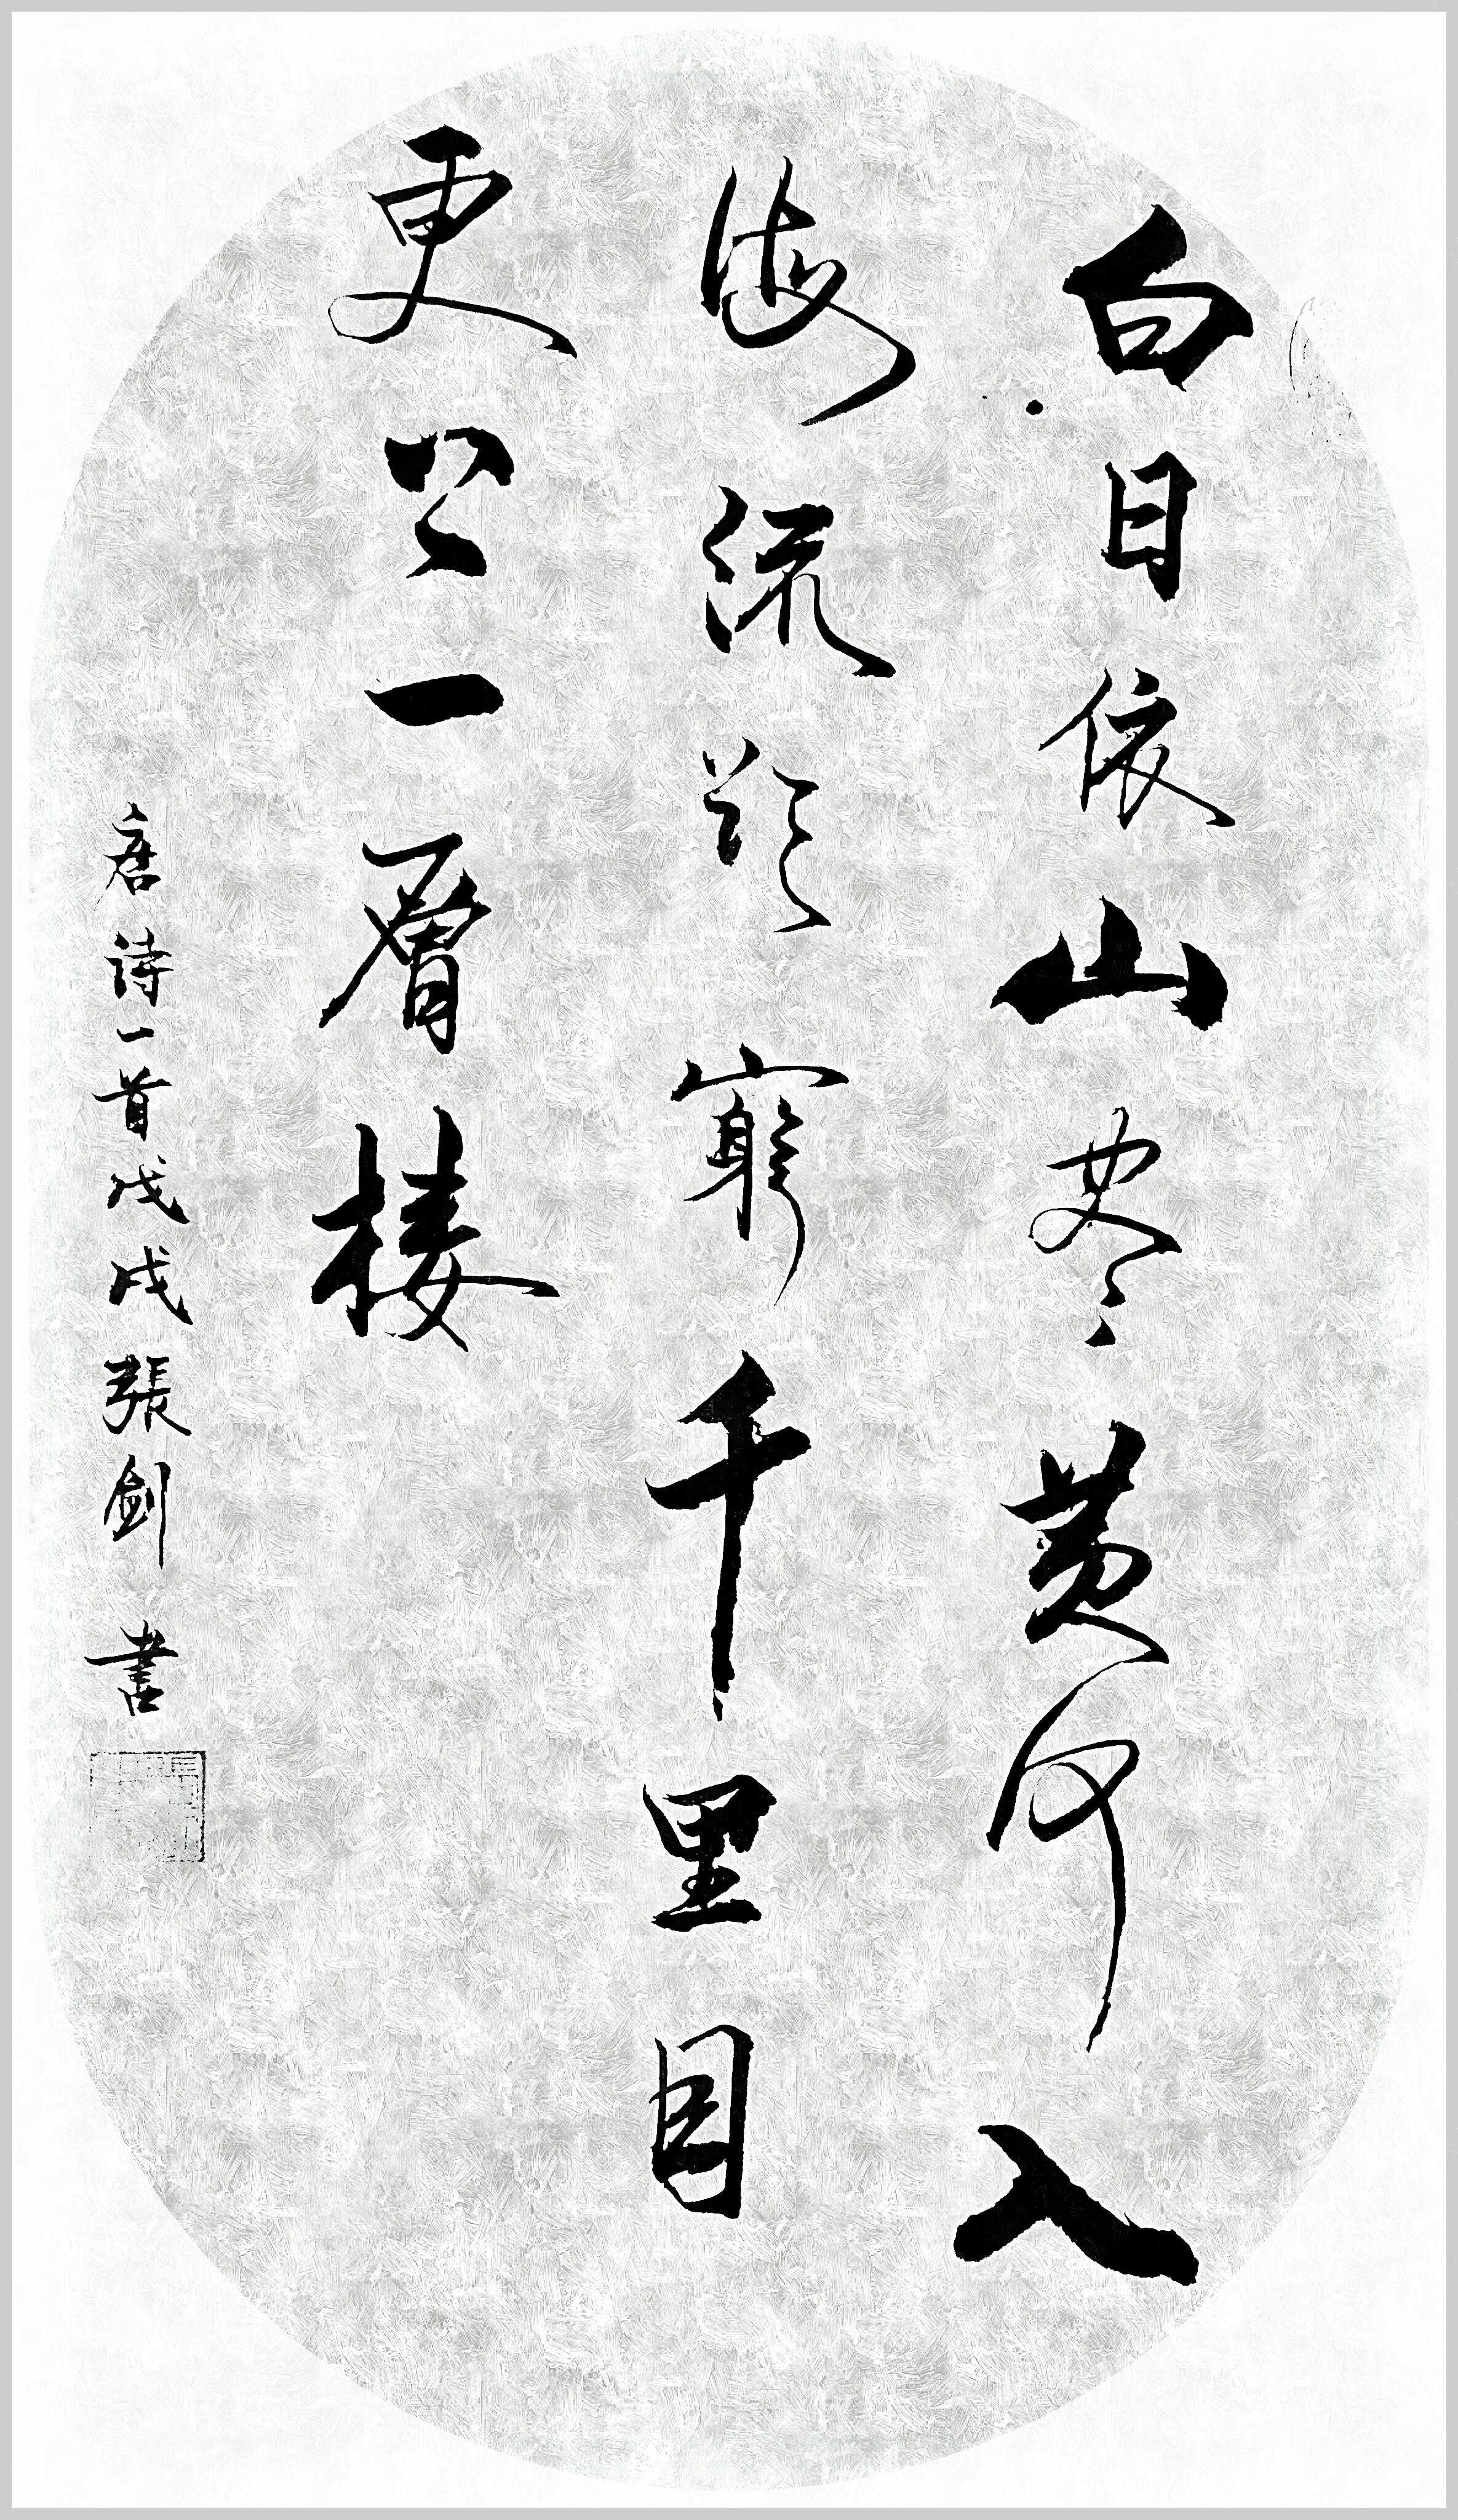 白日依山尽黄河入
海流欲穷千里目
更上一层楼
唐诗一首戊戌張劍書